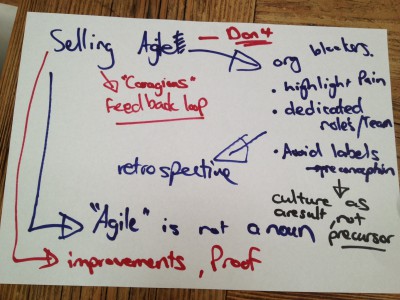 Selling Agile — Don't
"Contagious"
Feedback loop
org blockers.
• highlight Pain
• dedicated
roles/Team
• Avoid labels
→ preconception
retrospective
culture as
a result, not
precursor
"Agile" is not a noun
improvements, Proof